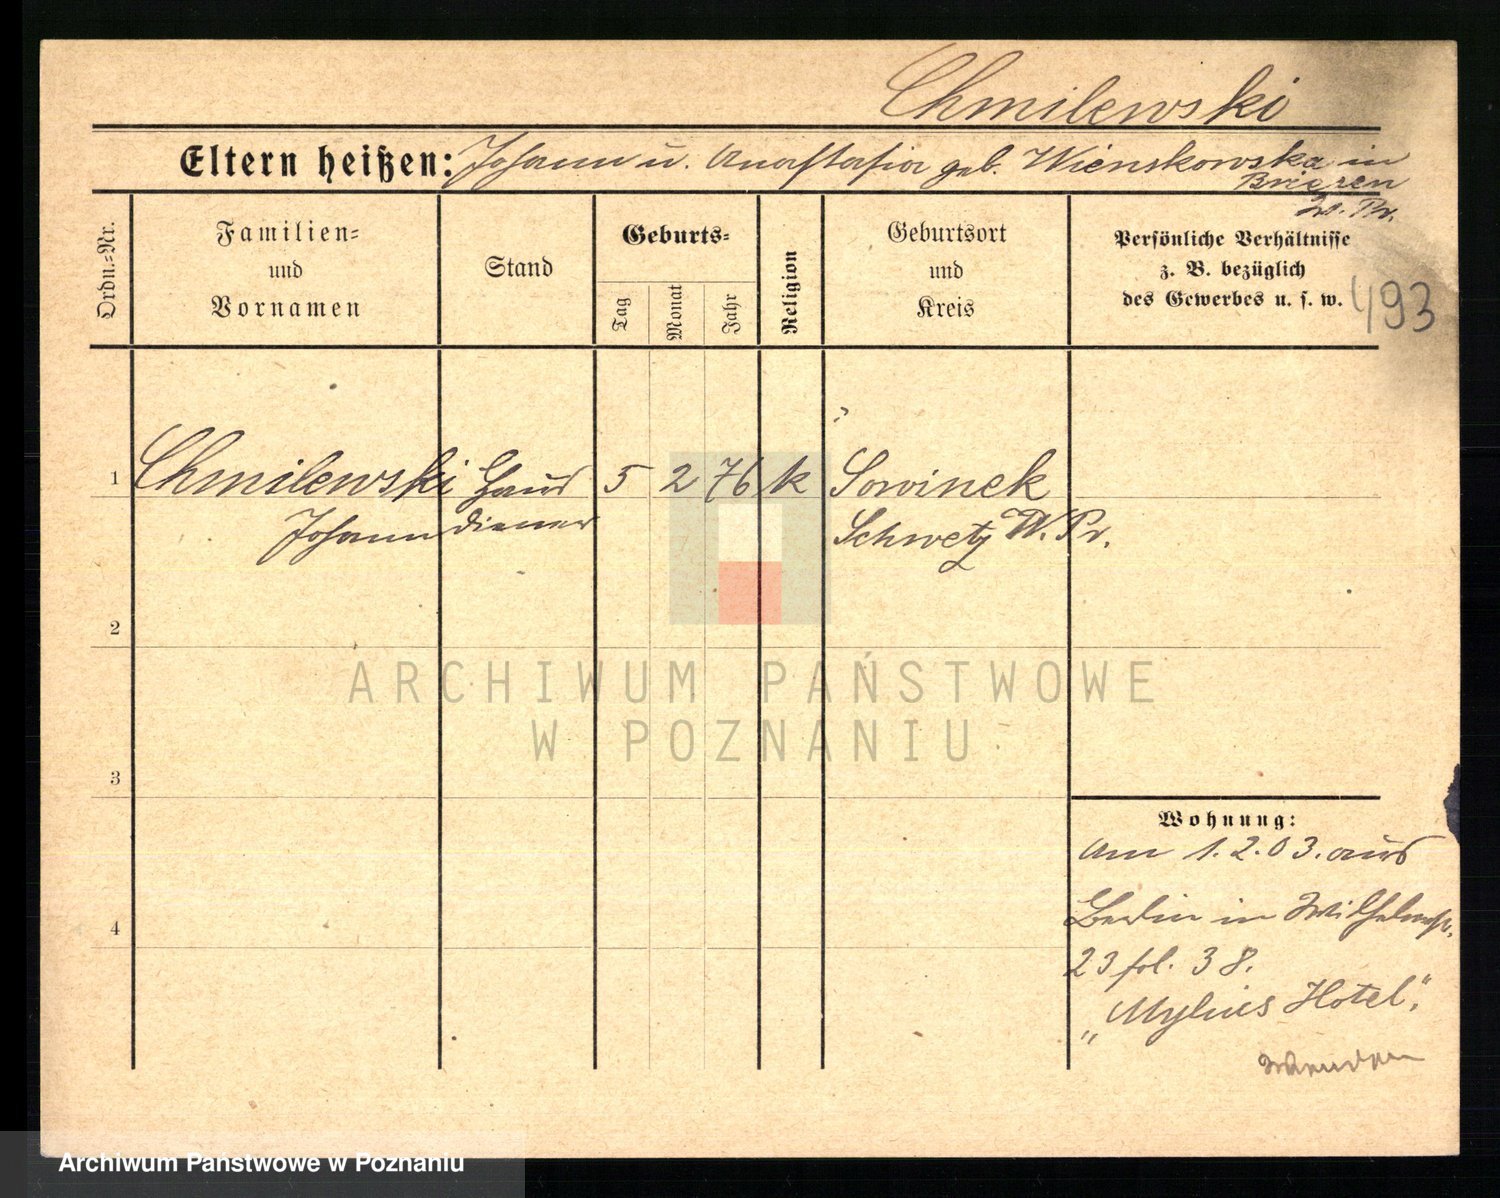 Chmilewski
Eltern heißen: Johann u. Anastasia geb. Wienskowska in
Briesen
W. Pr.
Ordn.-Nr.
Familien-
und
Vornamen
Stand
Geburts-
Tag
Monat
Jahr
Religion
Geburtsort
und
Kreis
Persönliche Verhältnisse
z. B. bezüglich
des Gewerbes u. s. w.
493
1 Chmilewski Haus 5 2 76 k Sowinek
Johann diener Schwetz W. Pr.
2
3
4
Wohnung:
Am 1.2.03. aus
Berlin in Wilhelmstr.
23 fol. 38.
„Mylius Hotel".
Wenden
ARCHIWUM PAŃSTWOWE
W POZNANIU
Archiwum Państwowe w Poznaniu